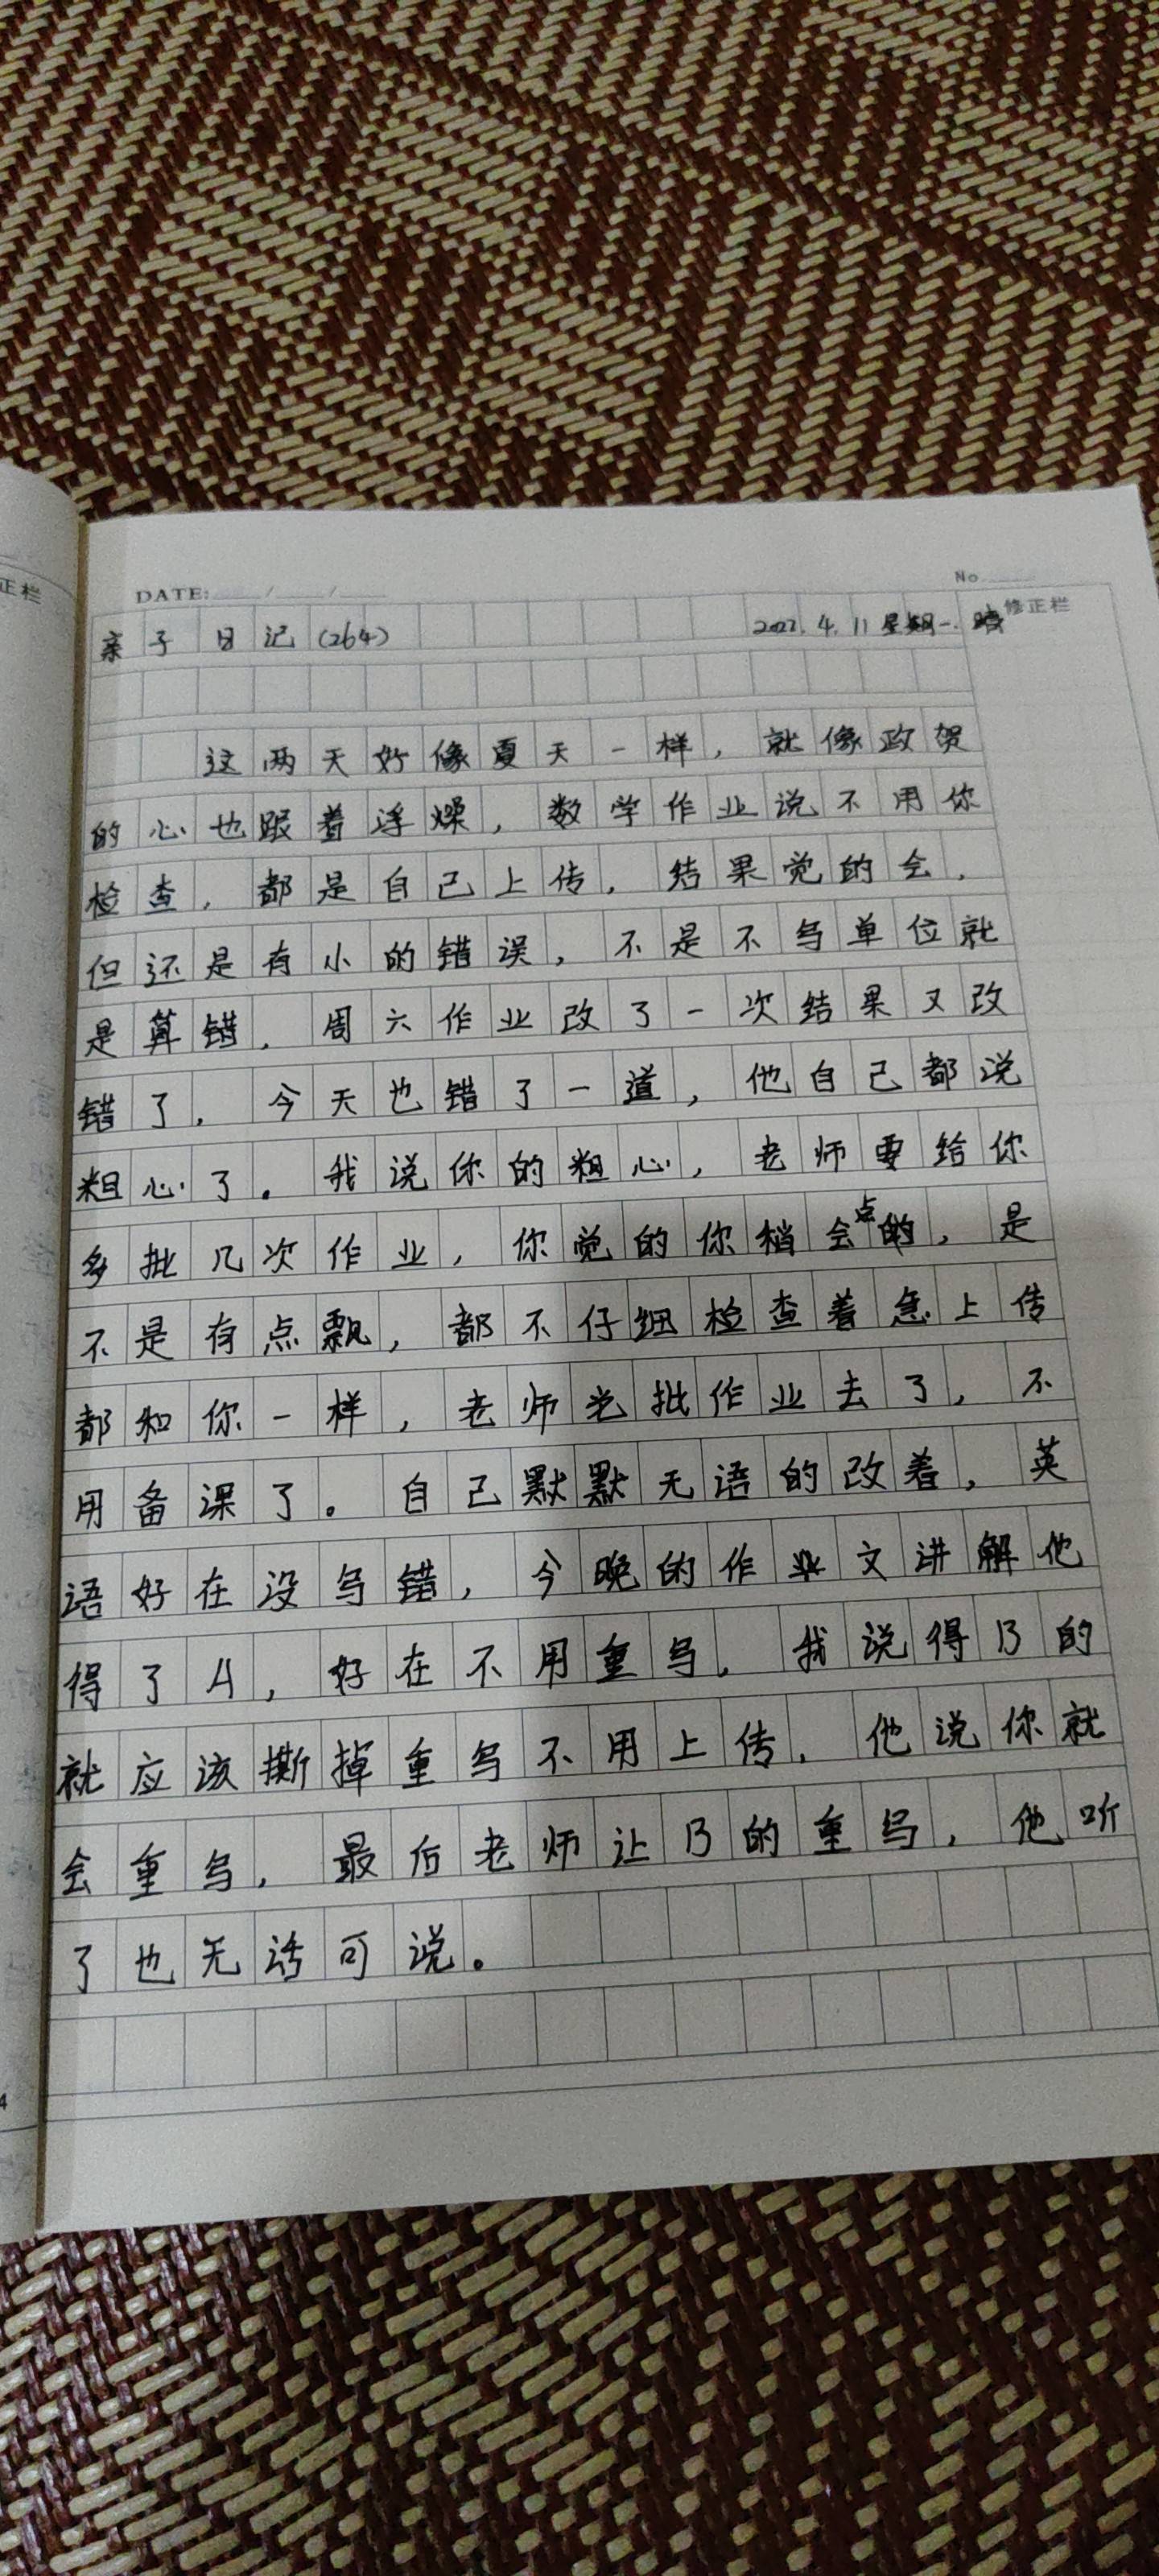 正栏
DATE: / /
No
亲子日记(264) 2022.4.11 星期一.晴 修正栏
这两天好像夏天一样，就像政贺
的心也跟着浮燥，数学作业说不用你
检查，都是自己上传，结果觉的会，
但还是有小的错误，不是不写单位就
是算错，周六作业改了一次结果又改
错了，今天也错了一道，他自己都说
粗心了。我说你的粗心，老师要给你
多批几次作业，你觉的你稍会点的，是
不是有点飘，都不仔细检查着急上传
都和你一样，老师光批作业去了，不
用备课了。自己默默无语的改着，英
语好在没写错，今晚的作业文讲解他
得了A，好在不用重写，我说得B的
就应该撕掉重写不用上传，他说你就
会重写，最后老师让B的重写，他听
了也无话可说。
4